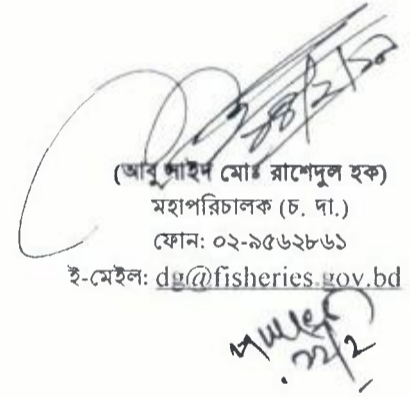 (আবু সাইদ মোঃ রাশেদুল হক)
মহাপরিচালক (চ. দা.)
ফোন: ০২-৯৫৬২৮৬১
ই-মেইল: dg@fisheries.gov.bd